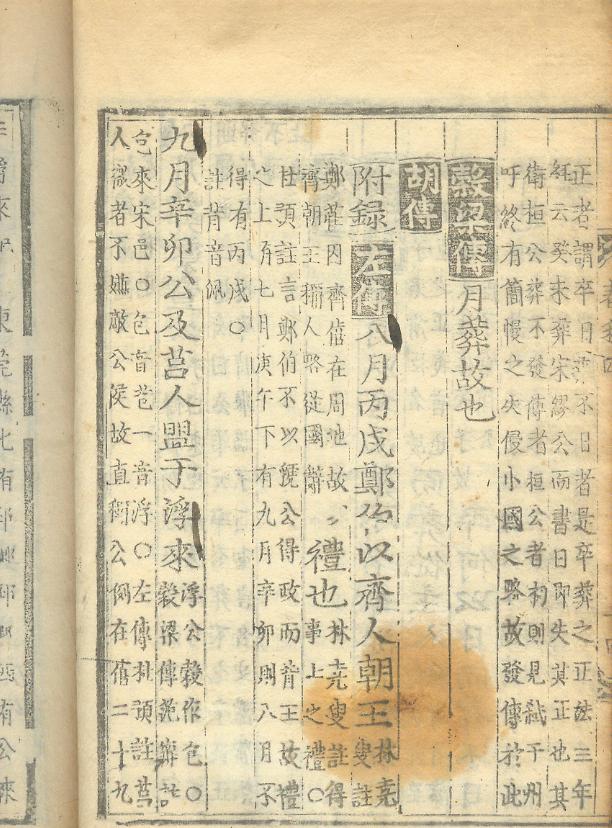 正者謂卒日葬不日者是卒葬之正法三年
經云癸未葬宋繆公而書日即失其正也其
衛桓公葬不發傳者桓公者初則見弒于州
吁終有簡慢之失侵小國之略故發傳於此
穀梁傳月葬故也
胡傳
附錄左傳八月丙戌鄭伯以齊人朝王林堯叟註
鄭莊因齊僖在周地故禮也林堯叟註得
齊朝王稱人略從國辭事上之禮〇
杜預註言鄭伯不以虢公得政而背王故禮
之上有七月庚午下有九月辛卯則八月不
得有丙戌〇
註背音佩
九月辛卯公及莒人盟于浮來浮公穀作包〇穀梁傳范甯註
包來宋邑〇包音苞一音浮〇左傳杜預註莒
人微者不嫌敵公侯故直稱公例在僖二十九